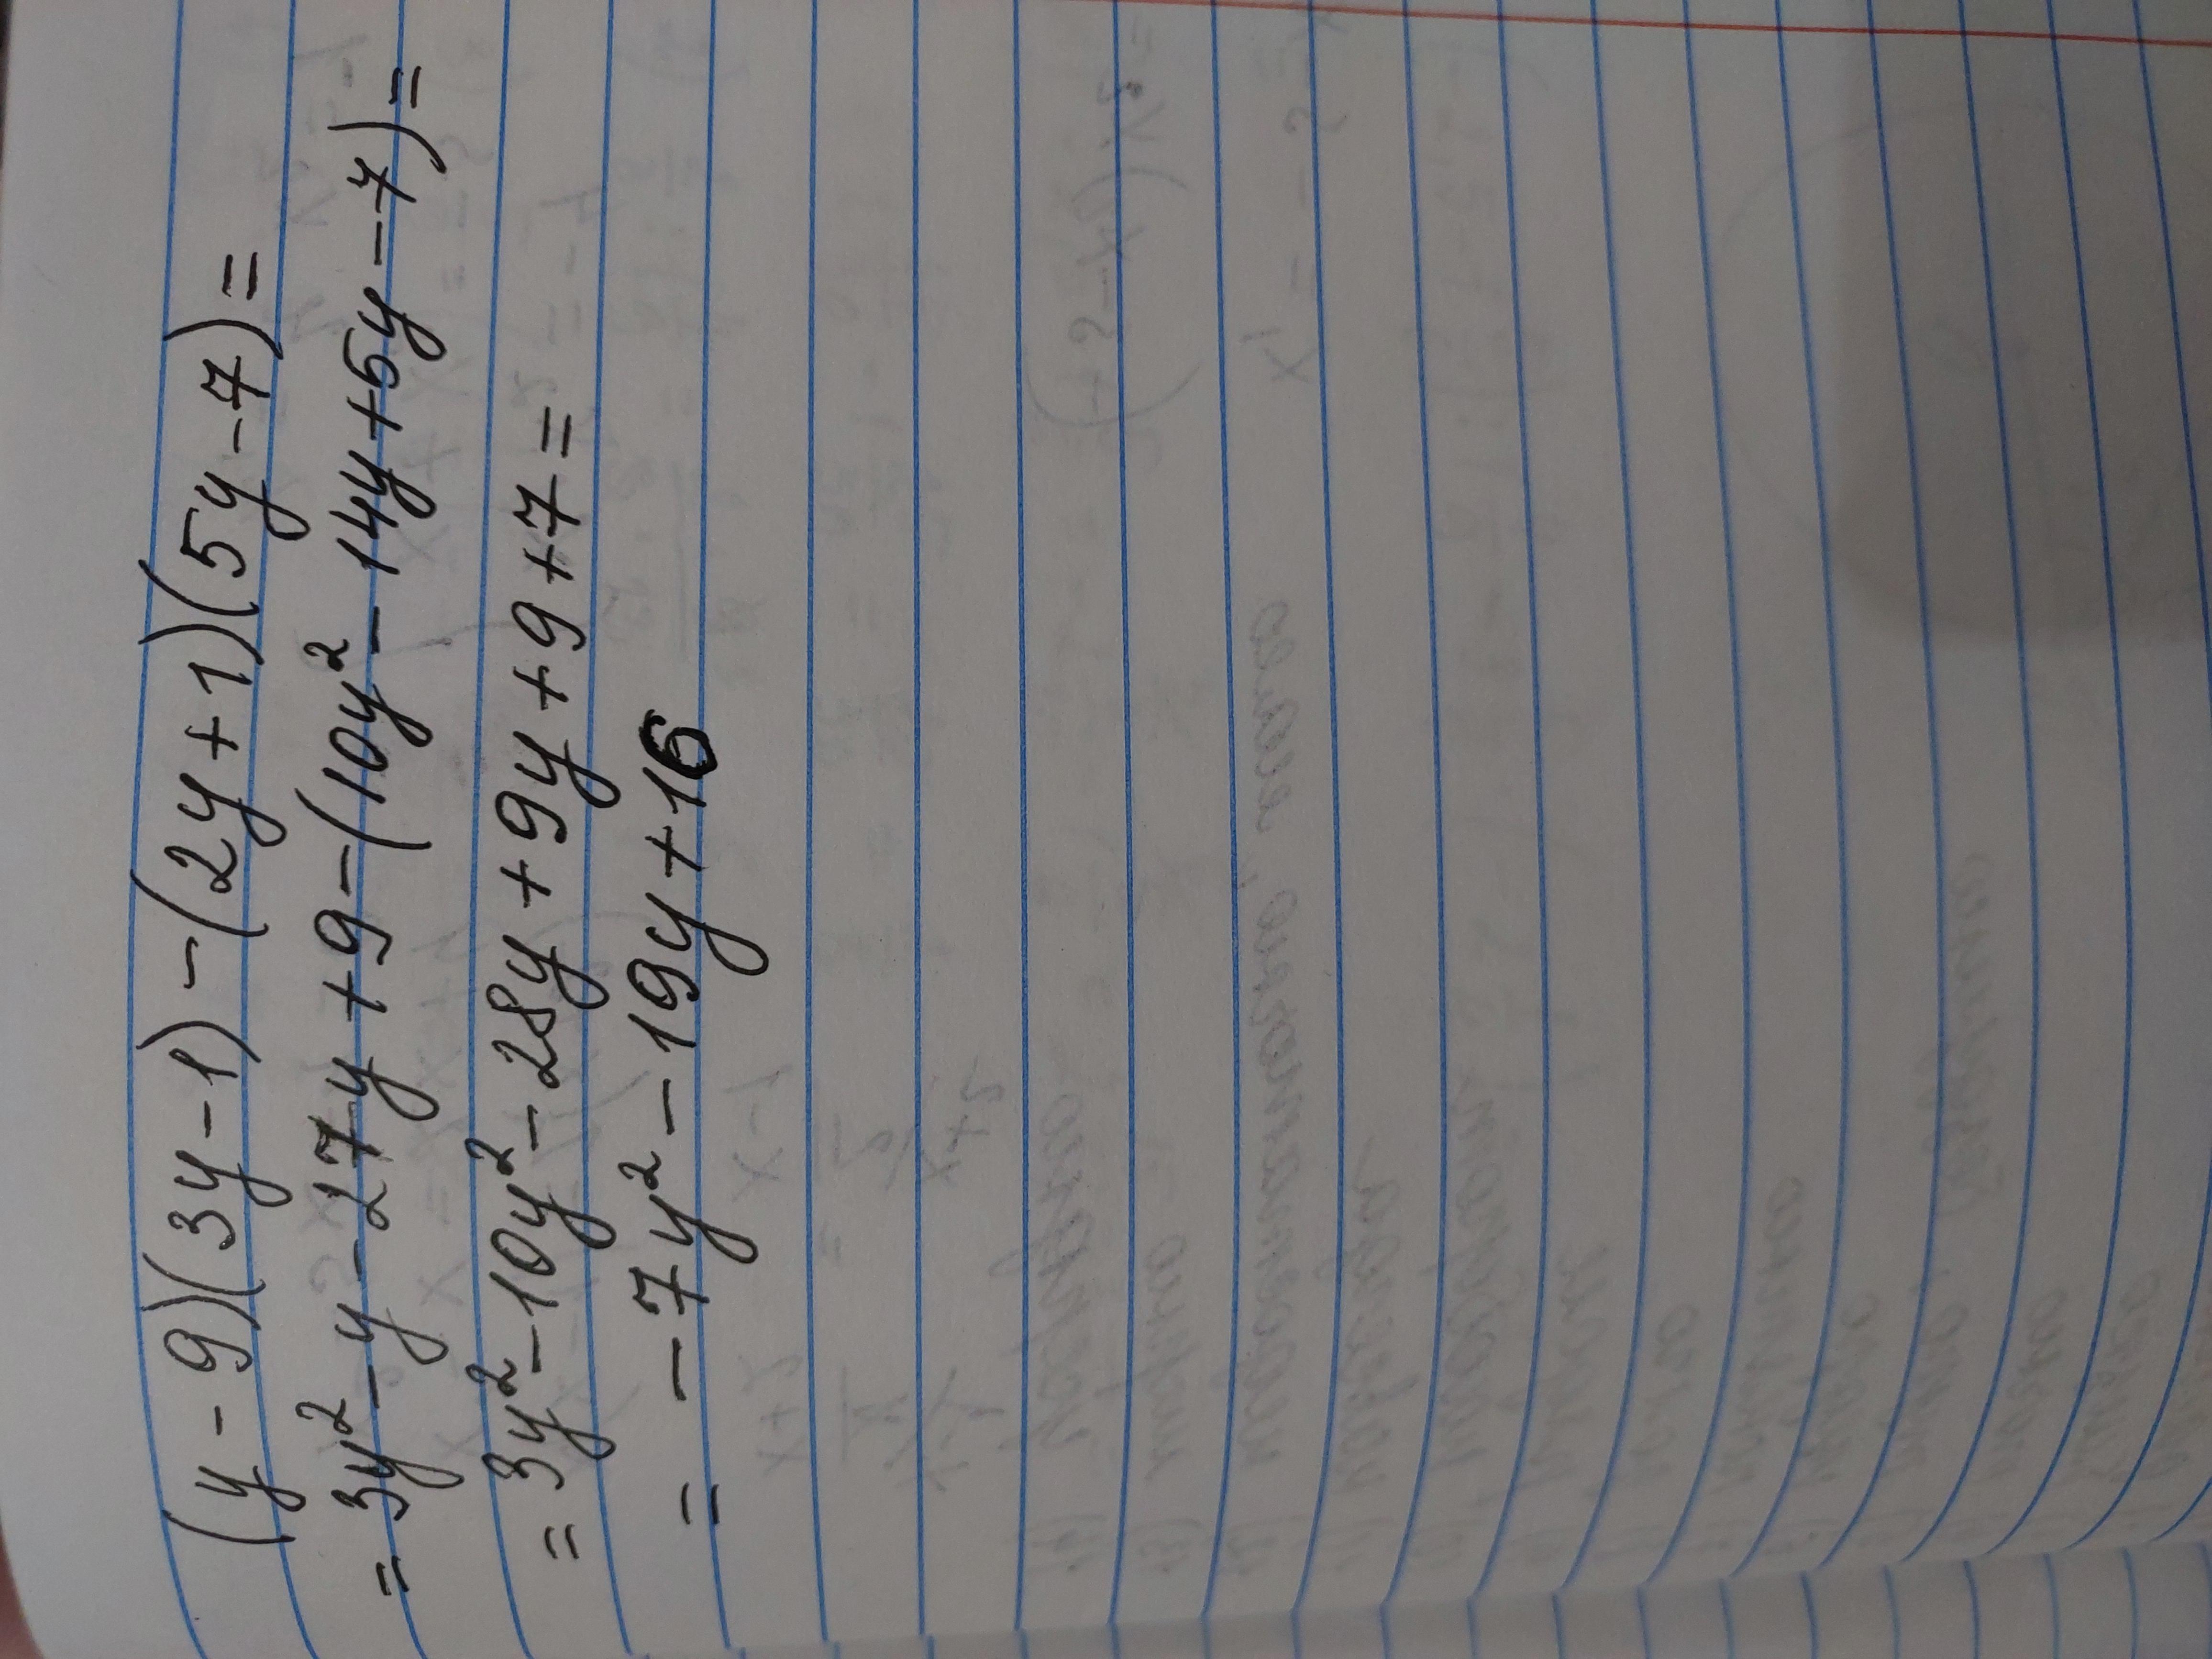 (y-9)(3y-1)-(2y+1)(5y-7)=
=3y²-y-27y+9-(10y²-14y+5y-7)=
=3y²-10y²-28y+9y+9+7=
= -7y²-19y+16